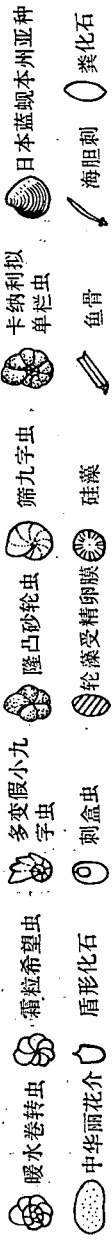 暖水卷转虫
霜粒希望虫
多变假小九
字虫
隆凸砂轮虫
筛九字虫
卡纳利拟
单栏虫
日本蓝蚬本州亚种
中华丽花介
盾形化石
刺盒虫
轮藻受精卵膜
硅藻
鱼骨
海胆刺
粪化石